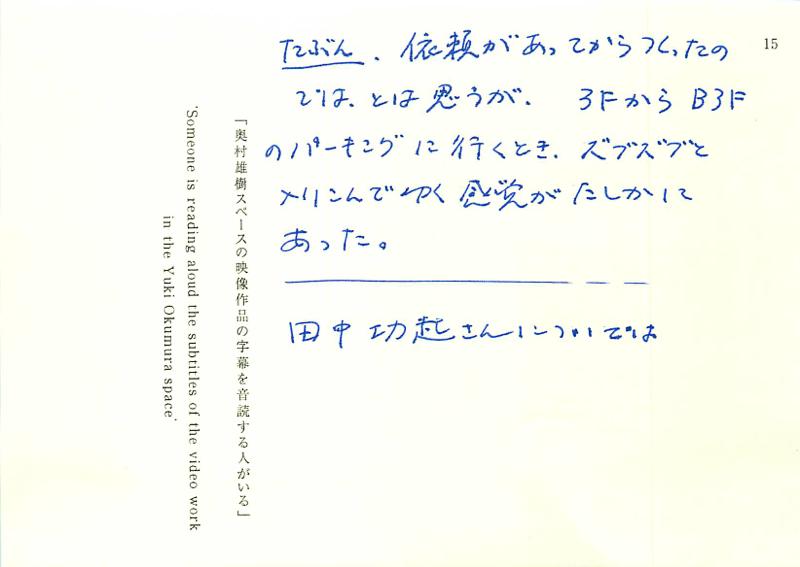 15
たぶん、依頼があってからつくったの
では、とは思うが、 3FからB3F
のパーキングに行くとき、ズブズブと
メリこんでゆく感覚がたしかに
あった。
田中功起さんについては
「奥村雄樹スペースの映像作品の字幕を音読する人がいる」
'Someone is reading aloud the subtitles of the video work
in the Yuki Okumura space'